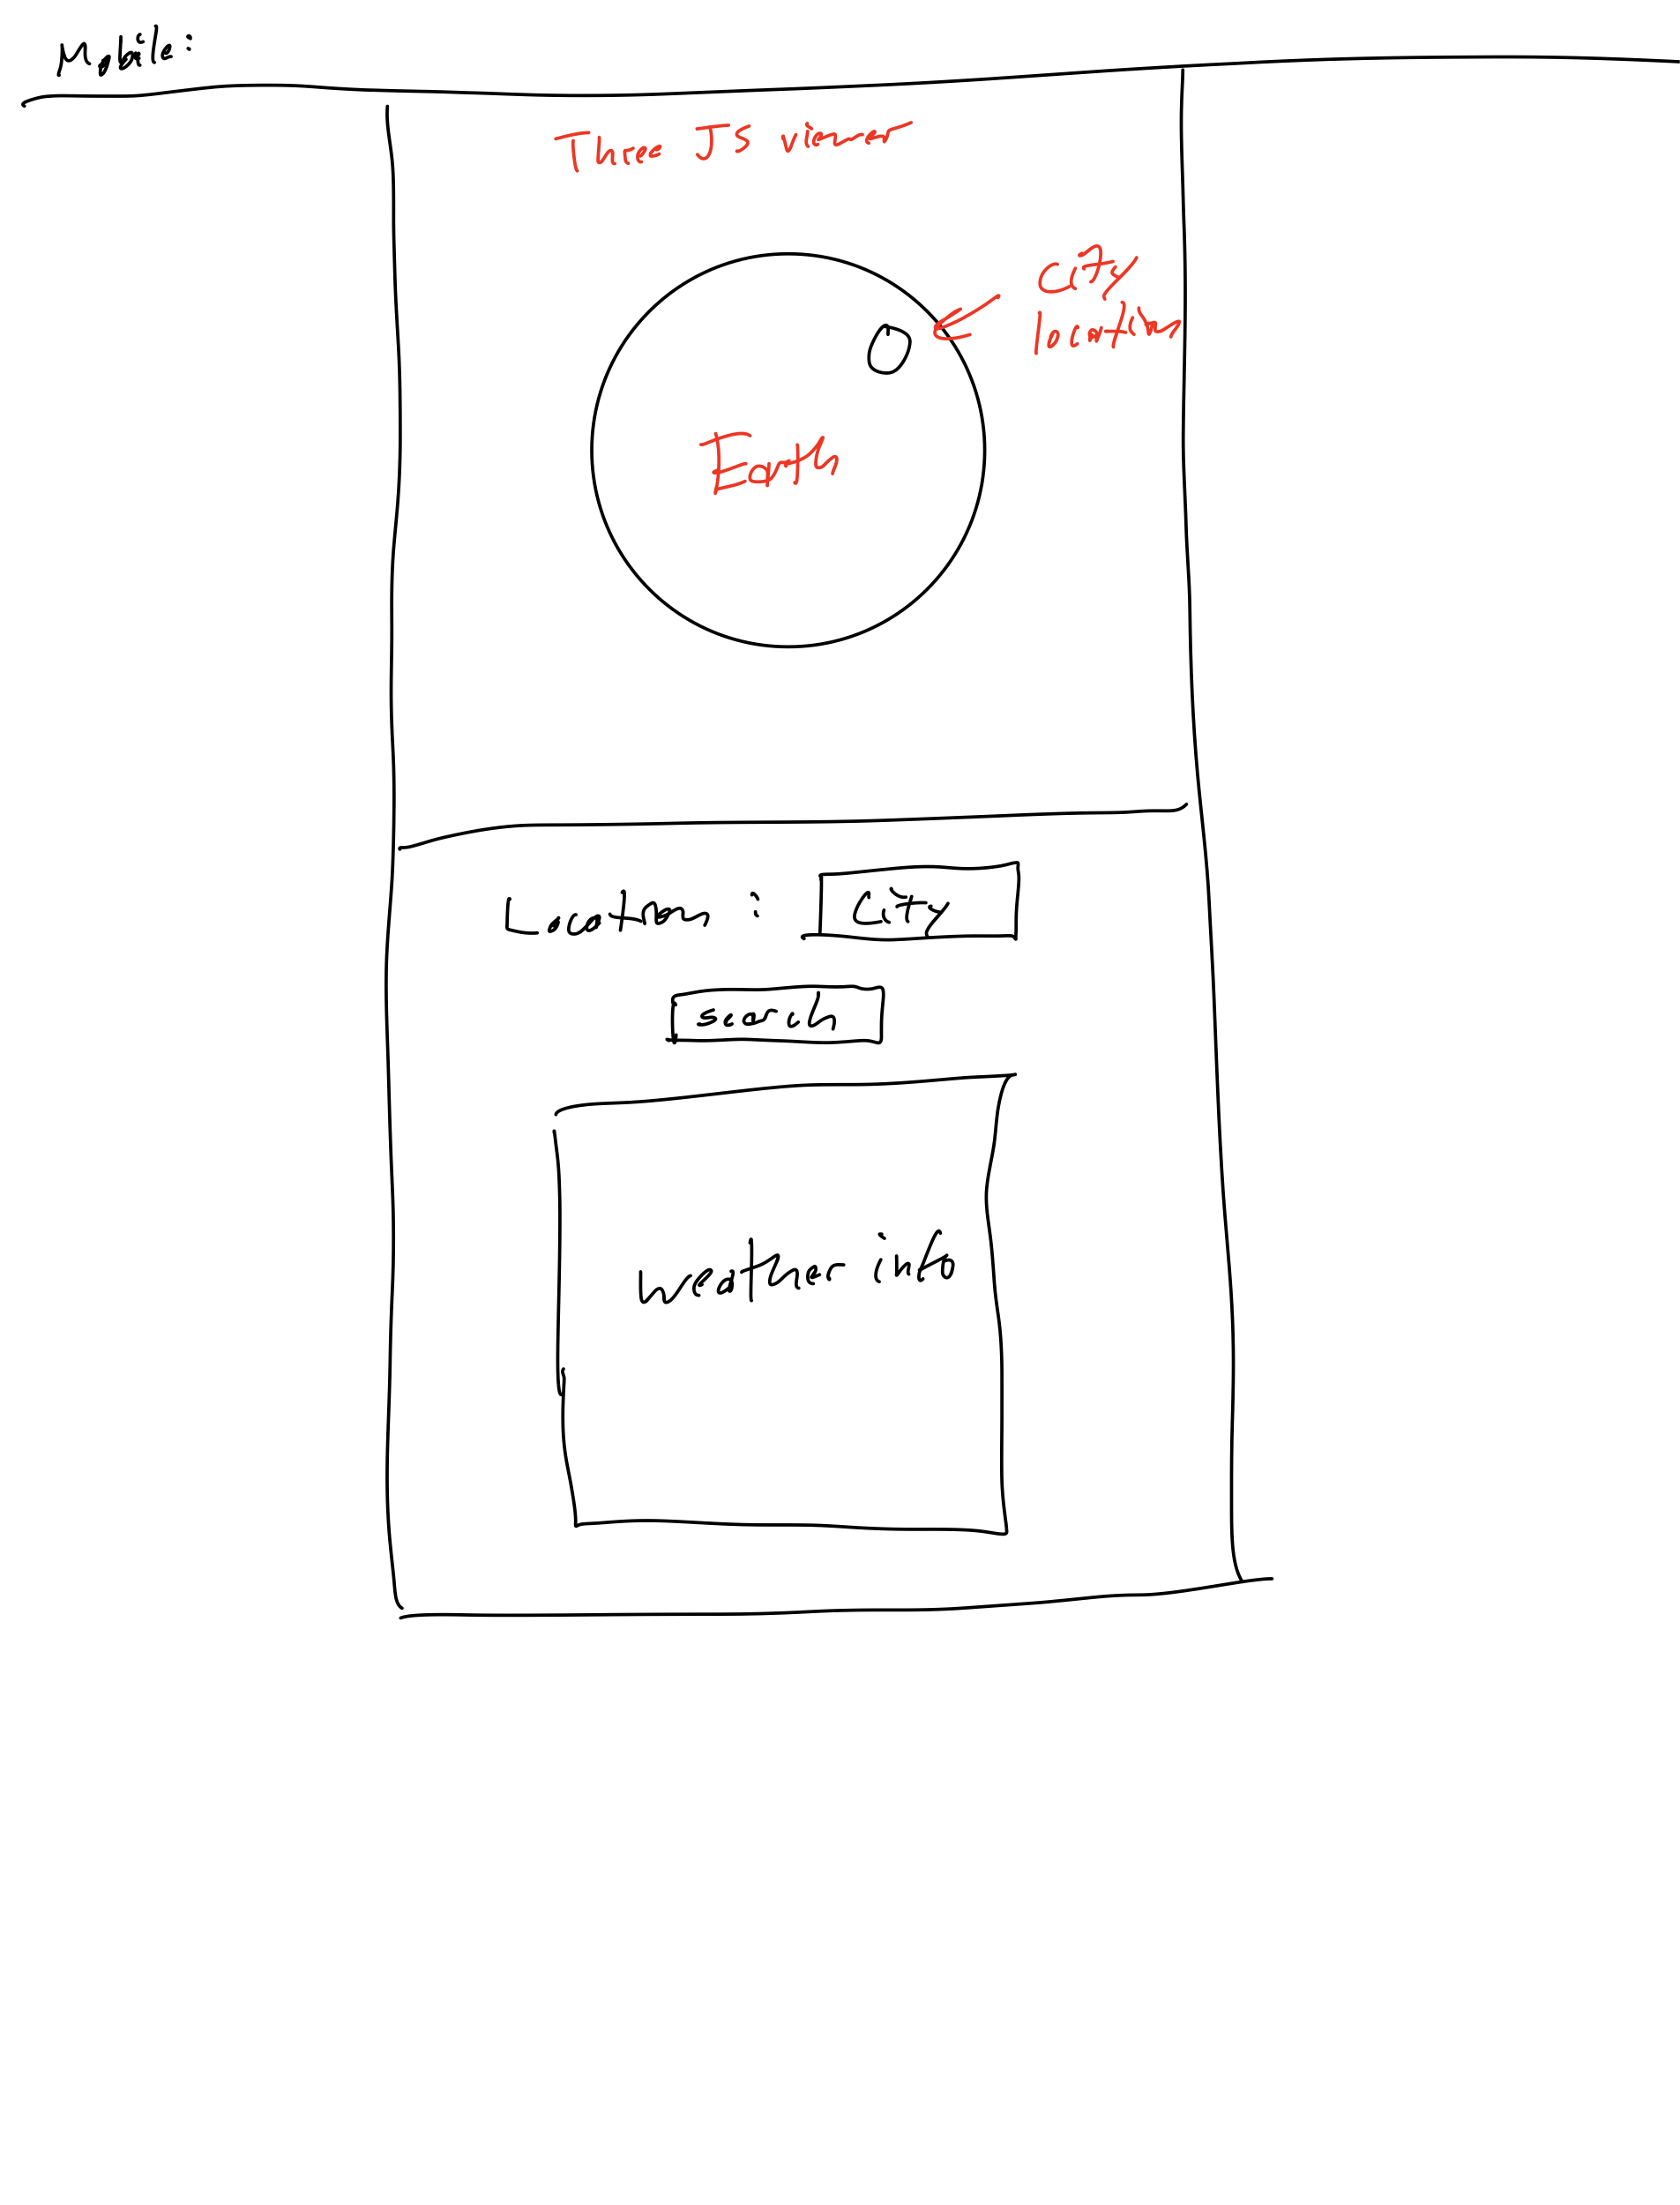 Mobile:
Three JS viewer
City
location
Earth
Location : City
search
weather info